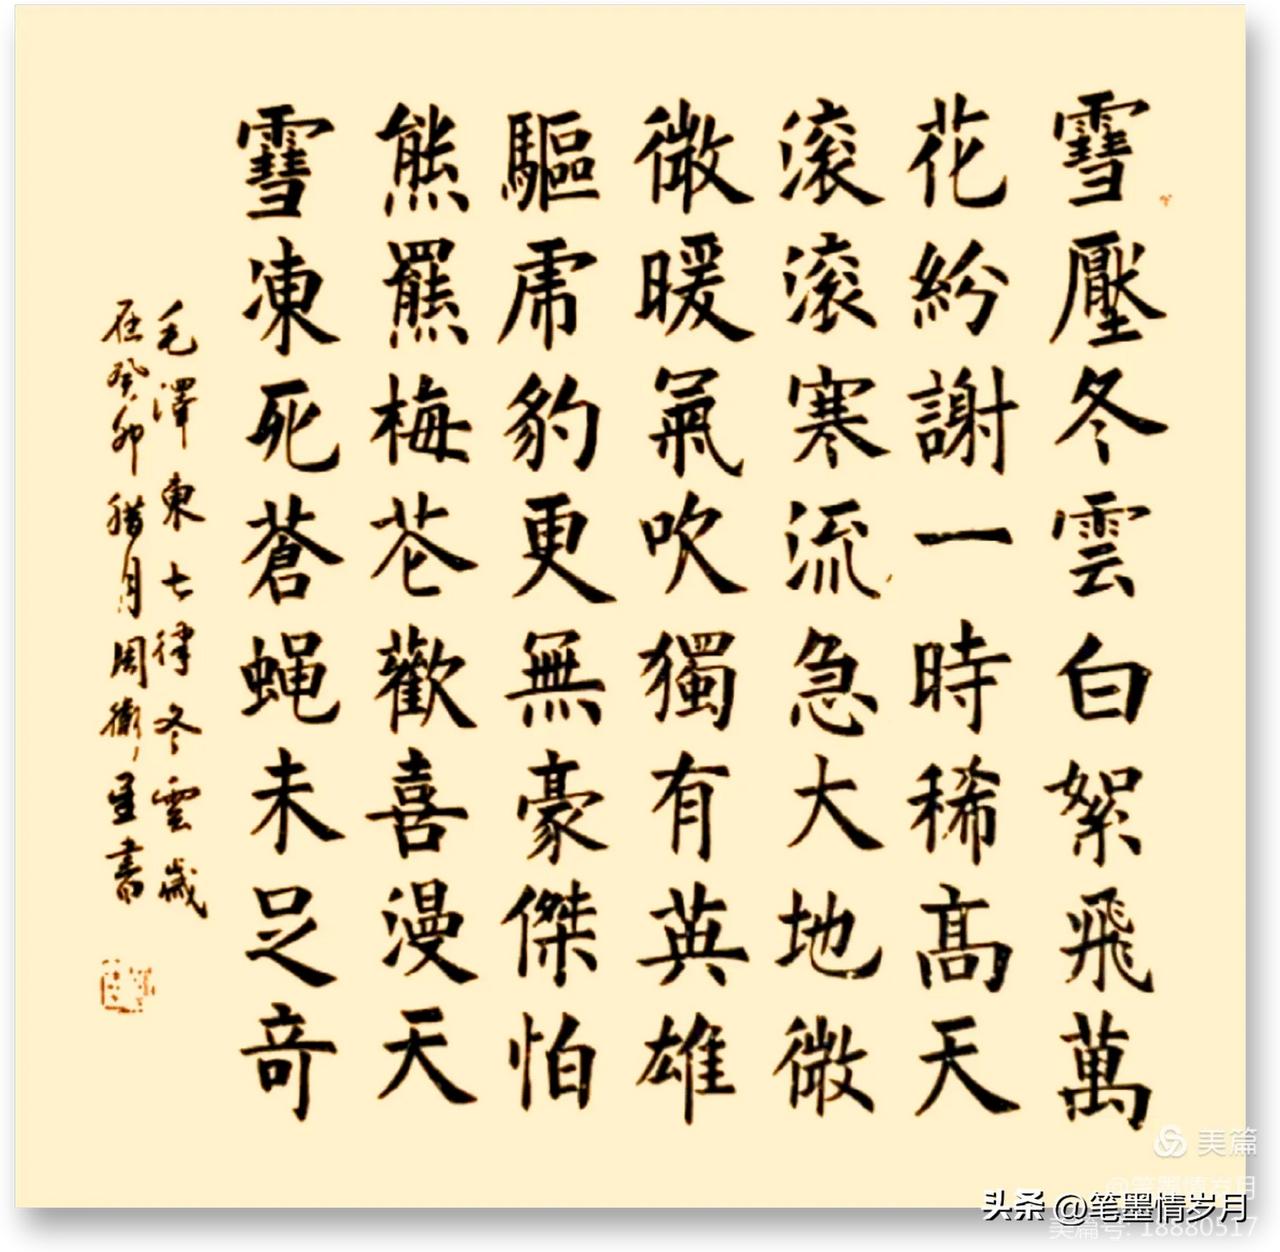 雪壓冬雲白絮飛萬
花紛謝一時稀髙天
滚滚寒流急大地微
微暖氣吹獨有英雄
驅虎豹更無豪傑怕
熊羆梅花歡喜漫天
雪凍死蒼蝇未足奇
毛澤東七律冬雲歲
在癸卯腊月周衛星書
美篇
@笔墨情岁月
头条 @笔墨情岁月
美篇号: 18880517